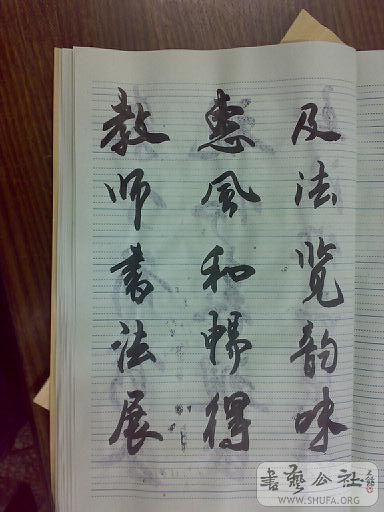 及法览韵味
惠风和畅得
教师书法展
书艺公社
WWW.SHUFA.ORG